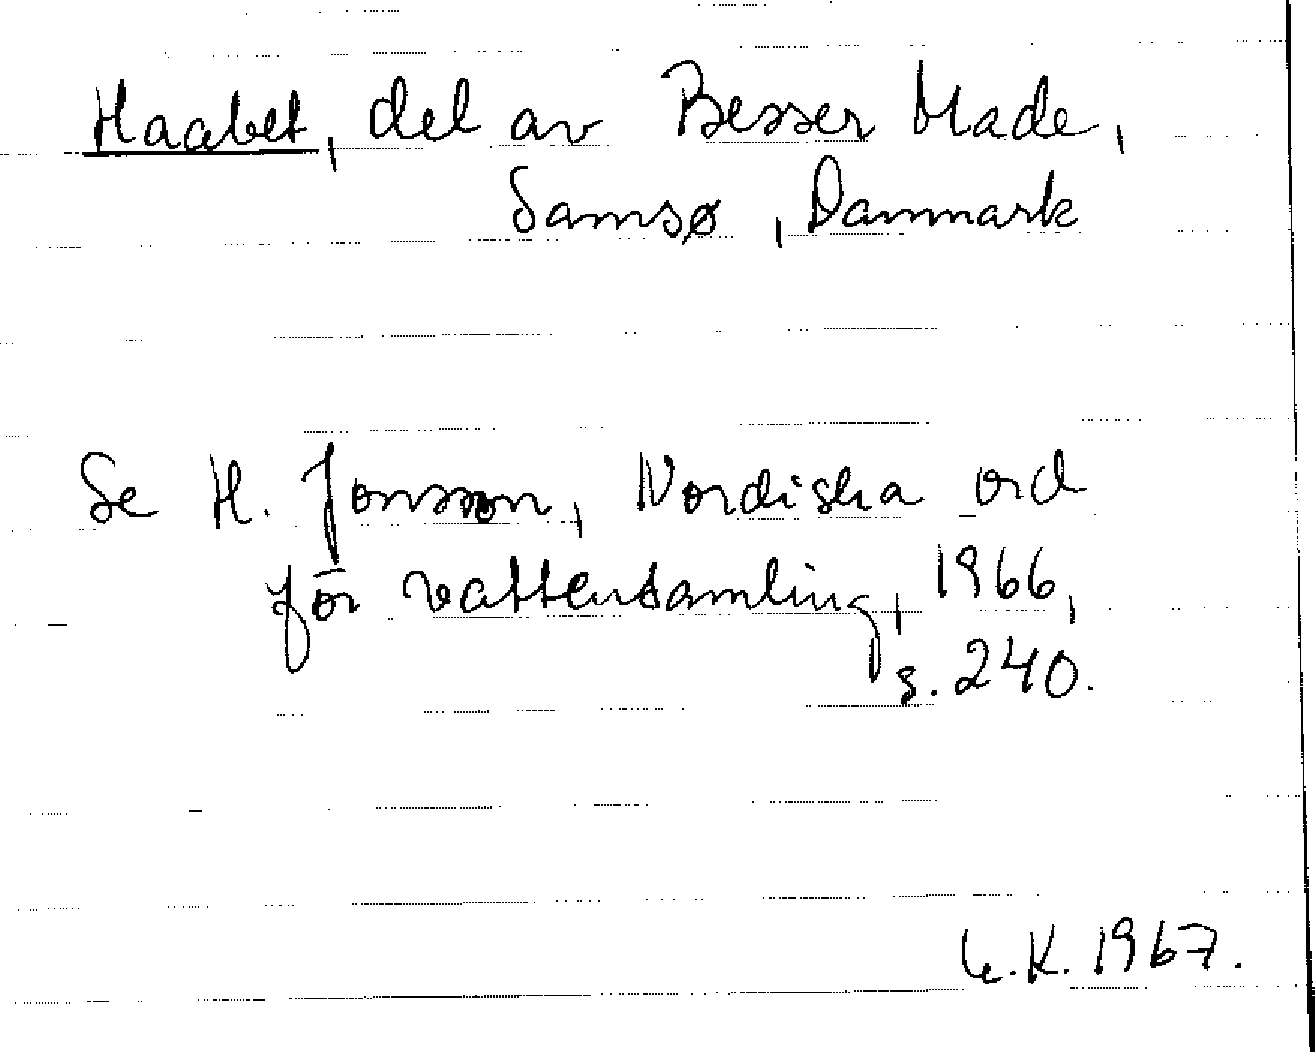 Haabet, del av Besser Made,
Samsø, Danmark
Se H. Jonsson, Nordiska ord
för vattensamling, 1966,
s. 240.
K. 1967.